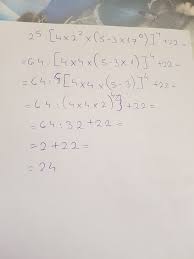 2⁵ · [4×2²×(5-3×17⁰)]⁴ +22 =
=64 · [4×4×(5-3×1)]⁴ +22 =
=64 · [4×4×(5-3)]⁴ +22 =
=64 · (4×4×2) +22 =
=64 : 32 +22 =
=2+22=
=24